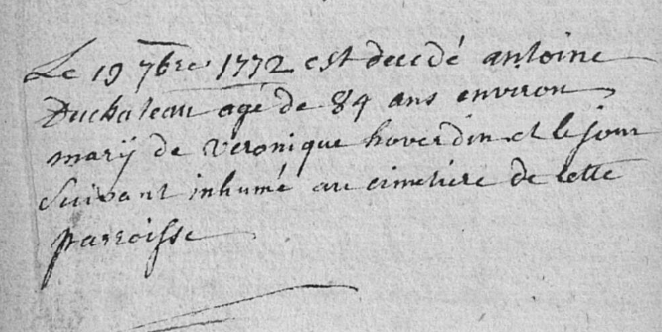 Le 19 7bre 1772 est decedé antoine
Duchateau agé de 84 ans environ
marÿ de veronique hoverdin et le jour
suivant inhumé au cimetiere de cette
parroisse